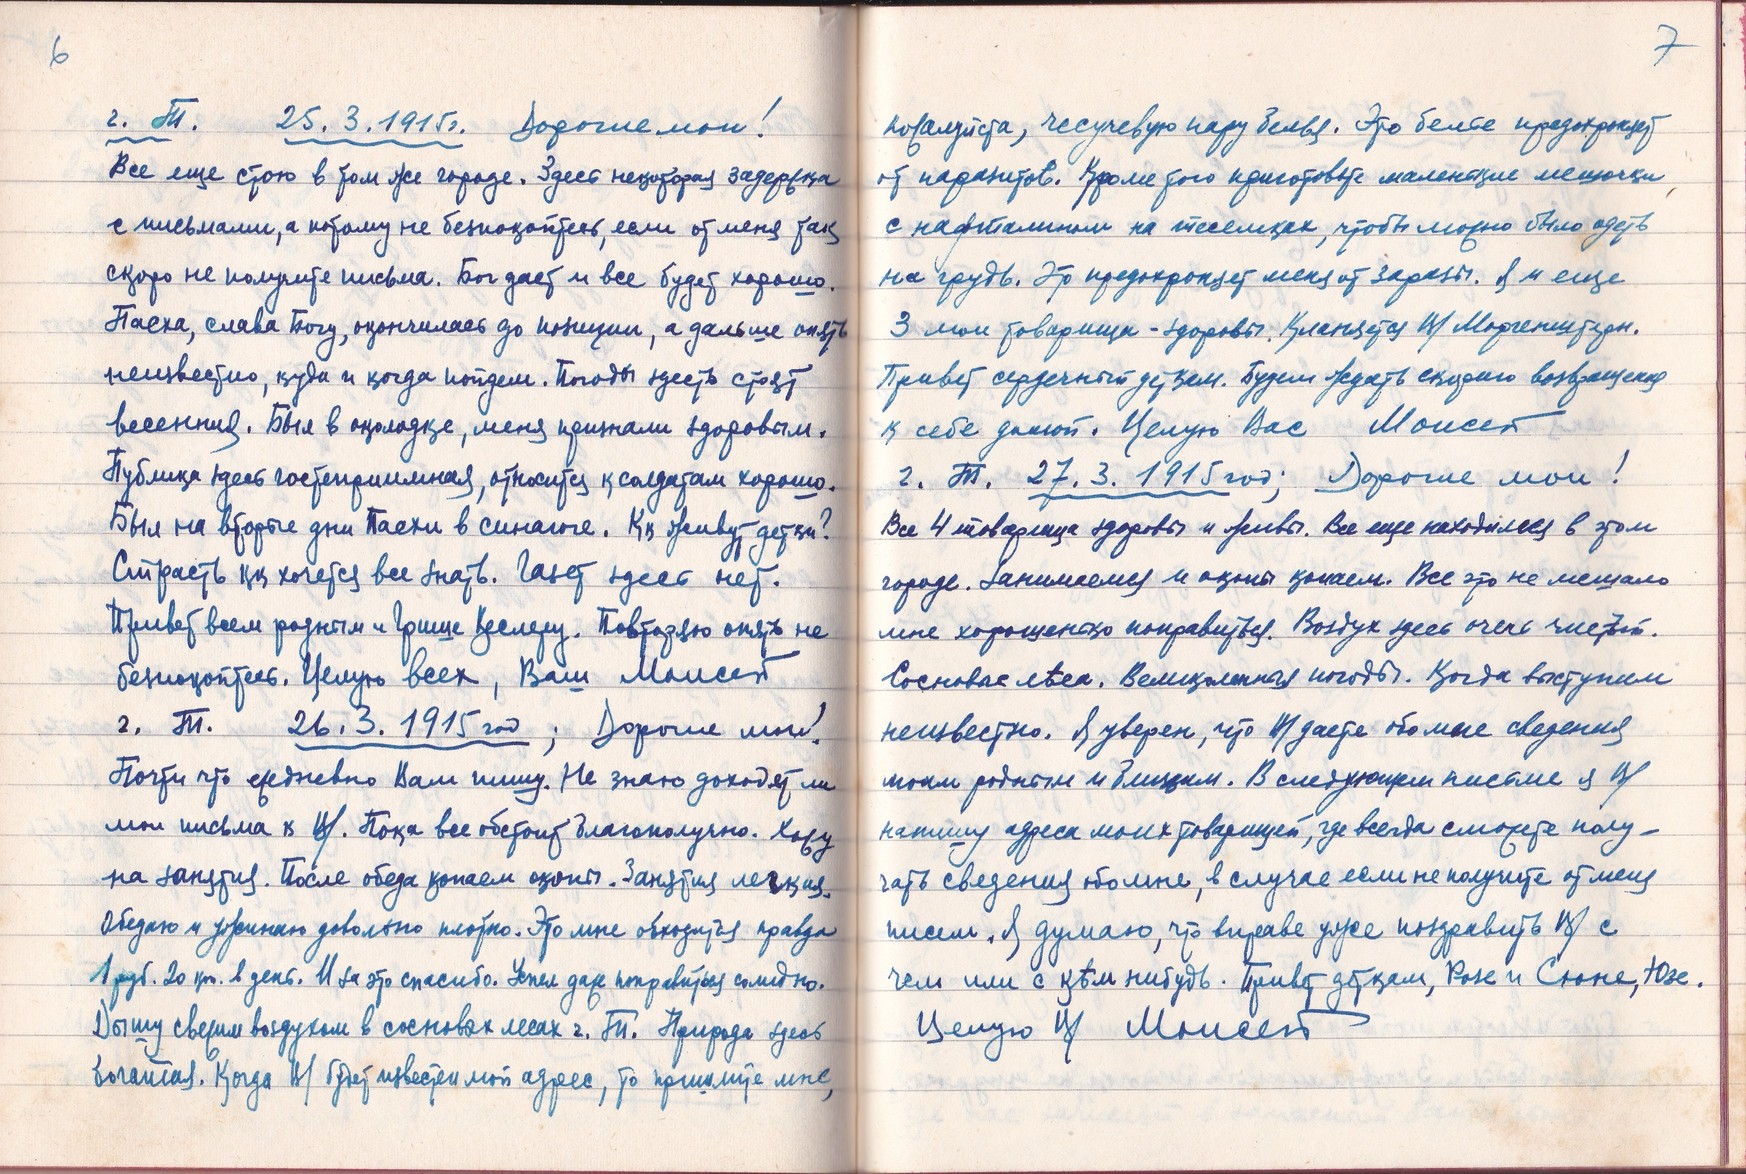 6
г. Т. 25.3.1915г. Дорогие мои!
Все еще стою в том же городе. Здесь некоторая задержка
с письмами, а потому не безпокойтесь, если от меня так
скоро не получите письма. Бог даст и все будет хорошо.
Пасха, слава Богу, окончилась до позиции, а дальше опять
неизвестно, куда и когда пойдем. Погоды здесь стоят
весенния. Был в околодке, меня признали здоровым.
Публика здесь гостеприимная, относится к солдатам хорошо.
Был на вторые дни Пасхи в синагоге. Кк живут детки?
Страсть кк хочется все знать. Газет здесь нет.
Привет всем родным и Грише Кеслеру. Повторяю опять не
безпокойтесь. Целую всех, Ваш Моисей
г. Т. 26.3.1915 год; Дорогие мои!
Почти что ежедневно Вам пишу. Не знаю доходят ли
мои письма к В/. Пока все обстоит благополучно. Хожу
на занятия. После обеда копаем окопы. Занятия легкия.
Обедаю и ужинаю довольно плотно. Это мне обходится правда
1 руб. 20 кп. в день. И за это спасибо. Успел даже поправиться солидно.
Дышу свежим воздухом в сосновых лесах г. Т. Природа здесь
богатая. Когда В/ будет известен мой адрес, то пришлите мне,
7
пожалуйста, чесучевую пару белья. Это белье предохраняет
от паразитов. Кроме того приготовьте маленькие мешочки
с нафталином на тесемках, чтобы можно было одеть
на грудь. Это предохраняет меня от заразы. Я и еще
3 мои товарища - здоровы. Кланяется В/ Моргенштерн.
Привет сердечный деткам. Будем ждать скораго возвращения
к себе домой. Целую Вас Моисей
г. Т. 27.3.1915 год; Дорогие мои!
Все 4 товарища здоровы и живы. Все еще находимся в этом
городе. Занимаемся и окопы копаем. Все это не мешало
мне хорошенько поправиться. Воздух здесь очень чистый.
Сосновые лѣса. Великолепныя погоды. Когда выступим
неизвестно. Я уверен, что В/ даете обо мне сведения
моим родным и близким. В следующем письме я В/
напишу адреса моих товарищей, где всегда сможете полу-
чать сведения обо мне, в случае если не получите от меня
писем. Я думаю, что вправе уже поздравить В/ с
чем или с кѣм нибудь. Привет деткам, Розе и Сюне, Юзе.
Целую В/ Моисей